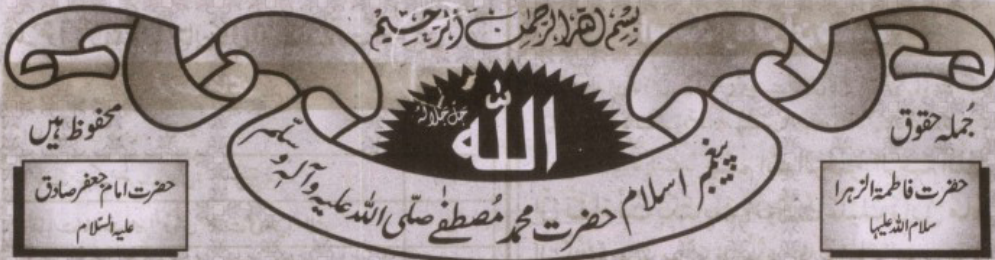 بِسْمِ اللهِ الرَّحْمٰنِ الرَّحِيْمِ
اللّٰهُ
جل جلالہ
جُملہ حقوق
محفوظ ہیں
پیغمبر اسلام حضرت محمد مُصطفٰے صلّی اللہ علیہ وآلہ وسلم
حضرت فاطمۃ الزہرا
سلام اللہ علیہا
حضرت امام جعفر صادق
علیہ السّلام